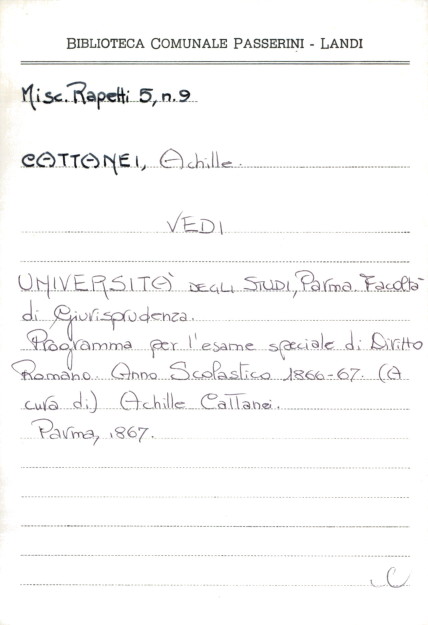 BIBLIOTECA COMUNALE PASSERINI - LANDI
Misc. Rapetti 5, n. 9
CATTANEI, Achille.
VEDI
UNIVERSITÀ DEGLI STUDI, Parma. Facoltà
di Giurisprudenza.
Programma per l'esame speciale di Diritto
Romano. Anno Scolastico 1866-67. (A
cura di) Achille Cattanei.
Parma, 1867.
C